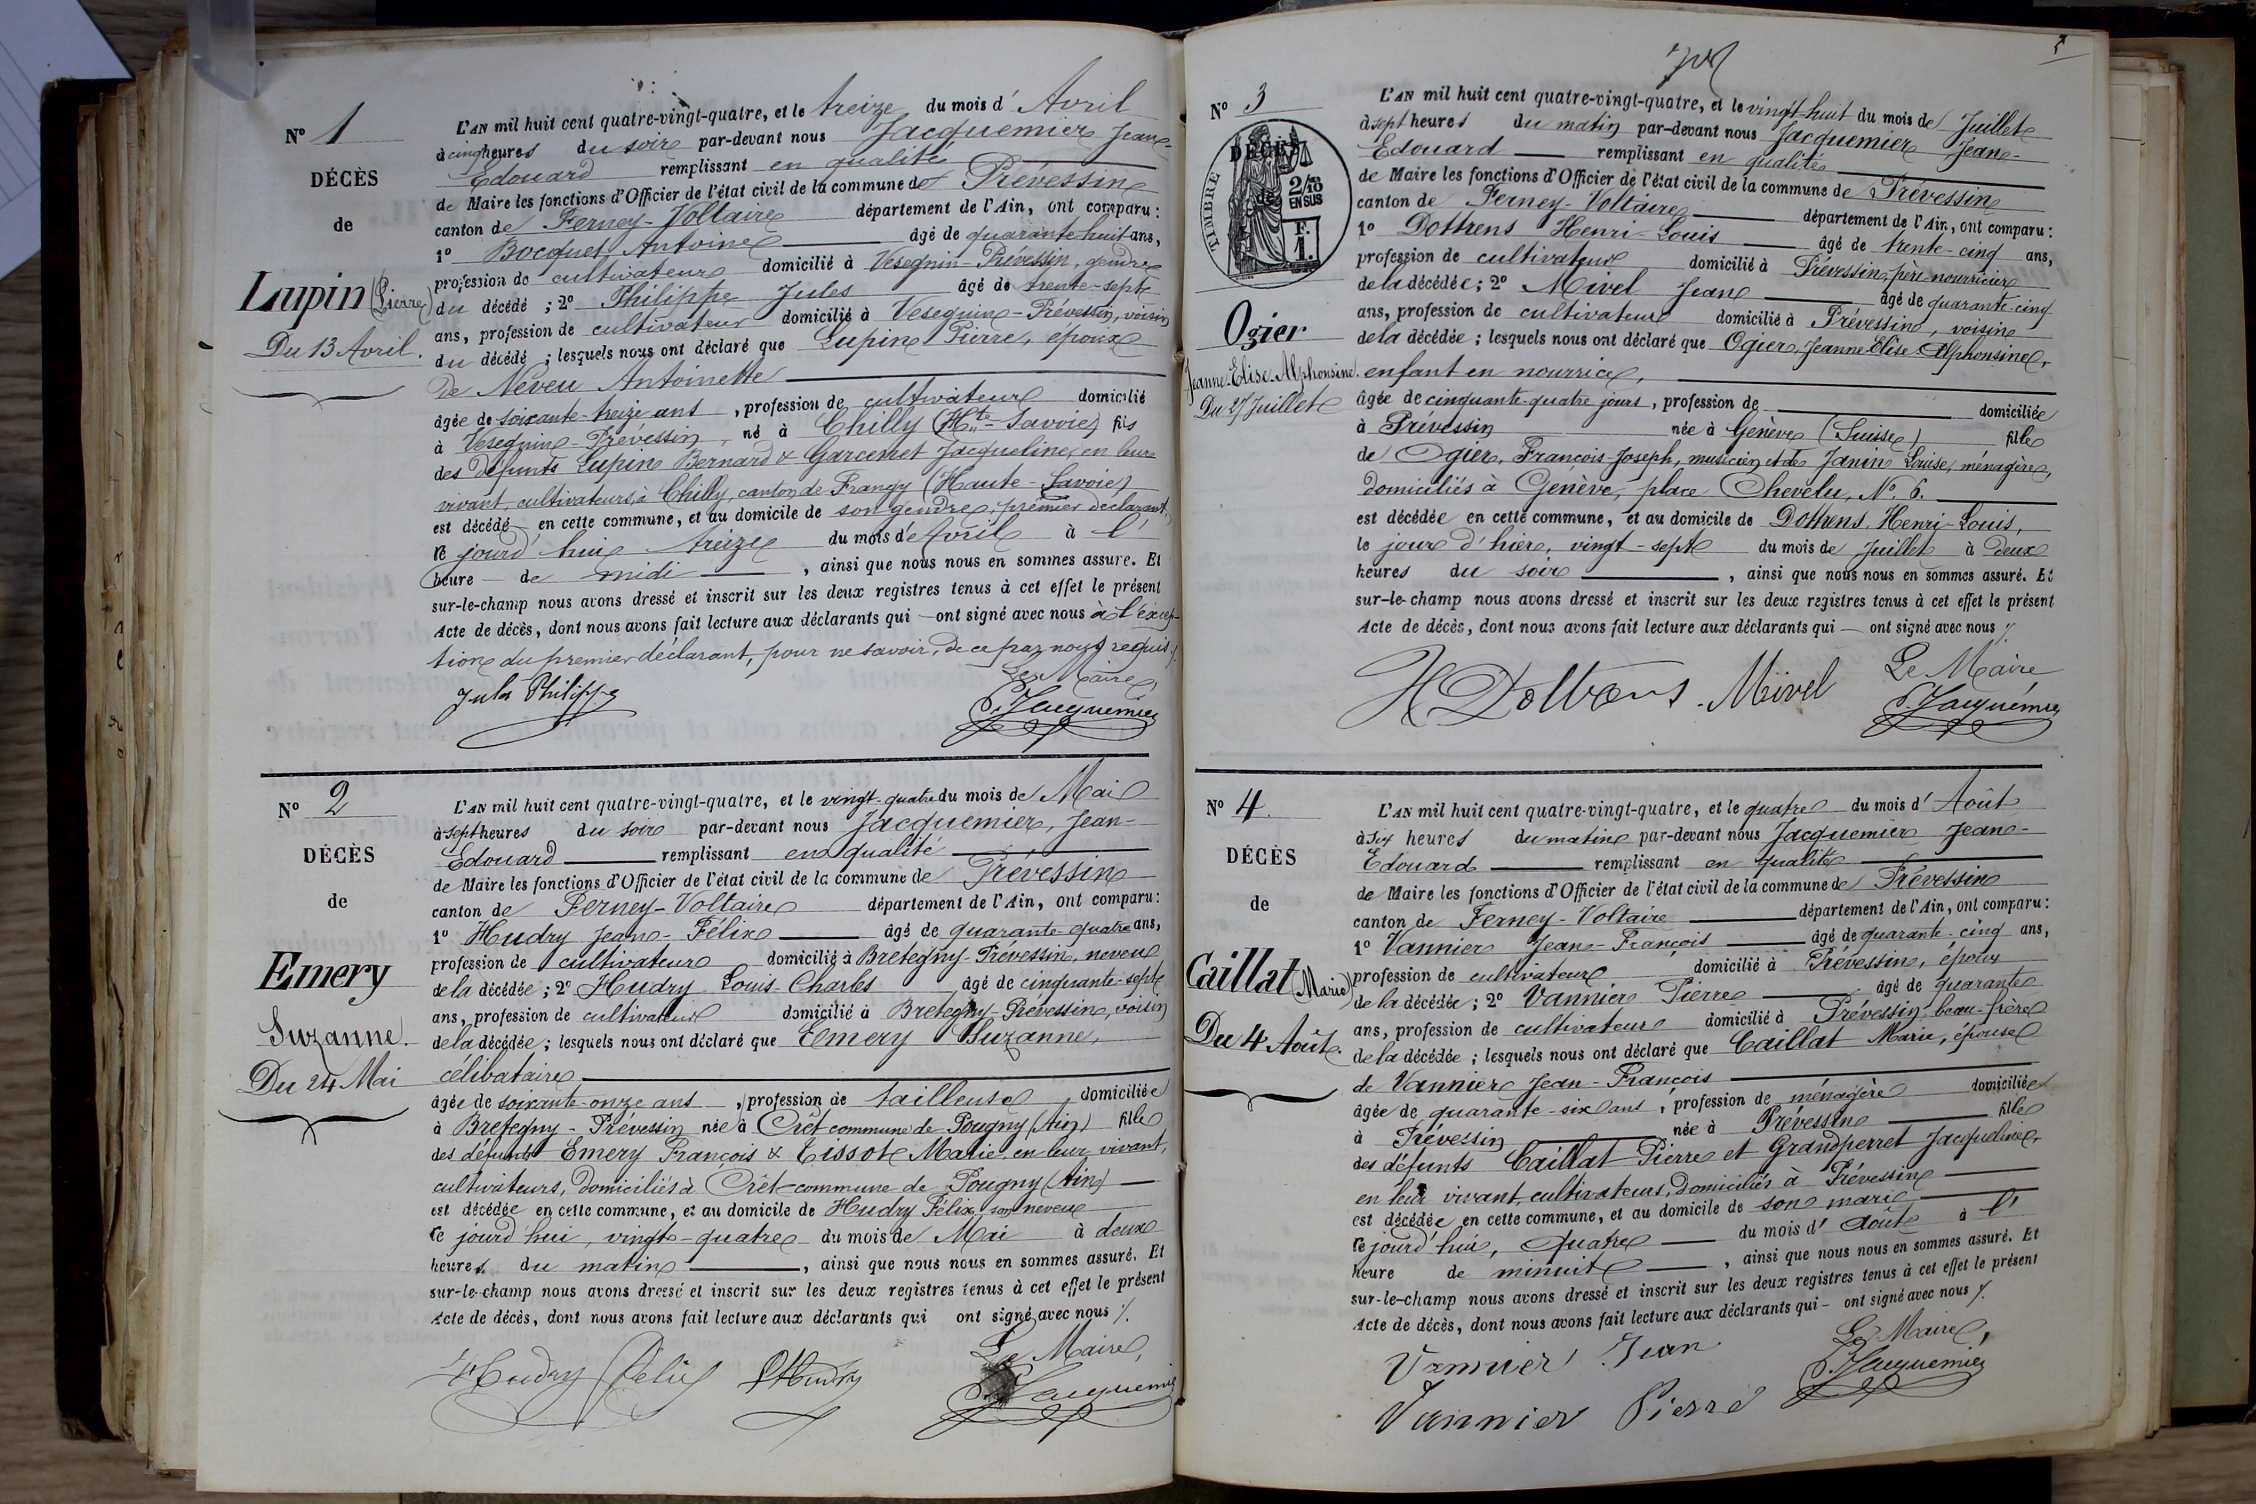 N° 1
DÉCÈS
de
Lupin (Pierre)
Du 13 Avril.
L'AN mil huit cent quatre-vingt-quatre, et le treize du mois d' Avril
à cinq heures du soir par-devant nous Jacquemier Jean-
Edouard remplissant en qualité
de Maire les fonctions d'Officier de l'état civil de la commune de Prévessin
canton de Ferney-Voltaire département de l'Ain, ont comparu :
1° Bocquet Antoine âgé de quarante huit ans,
profession de cultivateur domicilié à Vesegnin-Prévessin, gendre
du décédé ; 2° Philippe Jules âgé de trente-sept
ans, profession de cultivateur domicilié à Vesegnin-Prévessin, voisin
du décédé ; lesquels nous ont déclaré que Lupin Pierre, époux
de Neveu Antoinette
âgée de soixante-treize ans, profession de cultivateur domicilié
à Vesegnin-Prévessin, né à Chilly (Hte-Savoie) fils
des défunts Lupin Bernard & Garcenet Jacqueline, en leur
vivant, cultivateurs, à Chilly, canton de Frangy (Haute-Savoie)
est décédé en cette commune, et au domicile de son gendre, premier déclarant,
ce jourd'hui treize du mois d'Avril à l'
heure de midi, ainsi que nous nous en sommes assuré. Et
sur-le-champ nous avons dressé et inscrit sur les deux registres tenus à cet effet le présent
Acte de décès, dont nous avons fait lecture aux déclarants qui ont signé avec nous à l'excep-
tion du premier déclarant, pour ne savoir, de ce par nous requis ./.
Le Maire,
Jules Philippe
E. Jacquemier
N° 2
DÉCÈS
de
Emery
Suzanne.
Du 24 Mai
L'AN mil huit cent quatre-vingt-quatre, et le vingt-quatre du mois de Mai
à sept heures du soir par-devant nous Jacquemier, Jean-
Edouard remplissant en qualité
de Maire les fonctions d'Officier de l'état civil de la commune de Prévessin
canton de Ferney-Voltaire département de l'Ain, ont comparu :
1° Hudry Jean-Félix âgé de quarante-quatre ans,
profession de cultivateur domicilié à Bretegny-Prévessin, neveu
de la décédée ; 2° Hudry Louis-Charles âgé de cinquante-sept
ans, profession de cultivateur domicilié à Bretegny-Prévessin, voisin
de la décédée ; lesquels nous ont déclaré que Emery Suzanne,
célibataire
âgée de soixante-onze ans, profession de tailleuse, domiciliée
à Bretegny-Prévessin née à Crêt commune de Pougny (Ain) fille
des défunts Emery François & Tissot Marie, en leur vivant,
cultivateurs, domiciliés à Crêt-commune de Pougny (Ain)
est décédée en cette commune, et au domicile de Hudry Félix, son neveu
ce jourd'hui, vingt-quatre du mois de Mai à deux
heures du matin, ainsi que nous nous en sommes assuré. Et
sur-le-champ nous avons dressé et inscrit sur les deux registres tenus à cet effet le présent
Acte de décès, dont nous avons fait lecture aux déclarants qui ont signé avec nous ./.
Le Maire,
Hudry Félix Hudry E. Jacquemier
5
N° 3
DÉCÈS
de
TIMBRE
2/10
EN SUS
F.
1.
Ogier
Jeanne-Elise-Alphonsine.
Du 27 Juillet
L'AN mil huit cent quatre-vingt-quatre, et le vingt-huit du mois de Juillet
à sept heures du matin par-devant nous Jacquemier Jean-
Edouard remplissant en qualité
de Maire les fonctions d'Officier de l'état civil de la commune de Prévessin
canton de Ferney-Voltaire département de l'Ain, ont comparu :
1° Dothens Henri-Louis âgé de trente-cinq ans,
profession de cultivateur domicilié à Prévessin, père nourricier
de la décédée ; 2° Mivel Jean âgé de quarante-cinq
ans, profession de cultivateur domicilié à Prévessin, voisin
de la décédée ; lesquels nous ont déclaré que Ogier, Jeanne Elise Alphonsine,
enfant en nourrice,
âgée de cinquante-quatre jours, profession de domiciliée
à Prévessin née à Genève (Suisse) fille
de Ogier, François-Joseph, musicien et de Janin Louise, ménagère,
domiciliés à Genève, place Chevelu, N° 6.
est décédée en cette commune, et au domicile de Dothens, Henri-Louis,
le jour d'hier, vingt-sept du mois de Juillet à deux
heures du soir, ainsi que nous nous en sommes assuré. Et
sur-le-champ nous avons dressé et inscrit sur les deux registres tenus à cet effet le présent
Acte de décès, dont nous avons fait lecture aux déclarants qui ont signé avec nous ./.
Le Maire
H Dottrens. Mivel E. Jacquemier
N° 4.
DÉCÈS
de
Caillat (Marie)
Du 4 Août.
L'AN mil huit cent quatre-vingt-quatre, et le quatre du mois d' Août
à six heures du matin par-devant nous Jacquemier Jean-
Edouard remplissant en qualité
de Maire les fonctions d'Officier de l'état civil de la commune de Prévessin
canton de Ferney-Voltaire département de l'Ain, ont comparu :
1° Vannier Jean-François âgé de quarante-cinq ans,
profession de cultivateur domicilié à Prévessin, époux
de la décédée ; 2° Vannier Pierre âgé de quarante
ans, profession de cultivateur domicilié à Prévessin beau-frère
de la décédée ; lesquels nous ont déclaré que Caillat Marie, épouse
de Vannier Jean-François
âgée de quarante-six ans, profession de ménagère domiciliée
à Prévessin née à Prévessin fille
des défunts Caillat Pierre et Grandperret Jacqueline,
en leur vivant, cultivateurs, domiciliés à Prévessin
est décédée en cette commune, et au domicile de son mari
ce jourd'hui, quatre du mois d' Août à l'
heure de minuit, ainsi que nous nous en sommes assuré. Et
sur-le-champ nous avons dressé et inscrit sur les deux registres tenus à cet effet le présent
Acte de décès, dont nous avons fait lecture aux déclarants qui ont signé avec nous ./.
Le Maire,
Vannier Jean
E. Jacquemier
Vannier Pierre